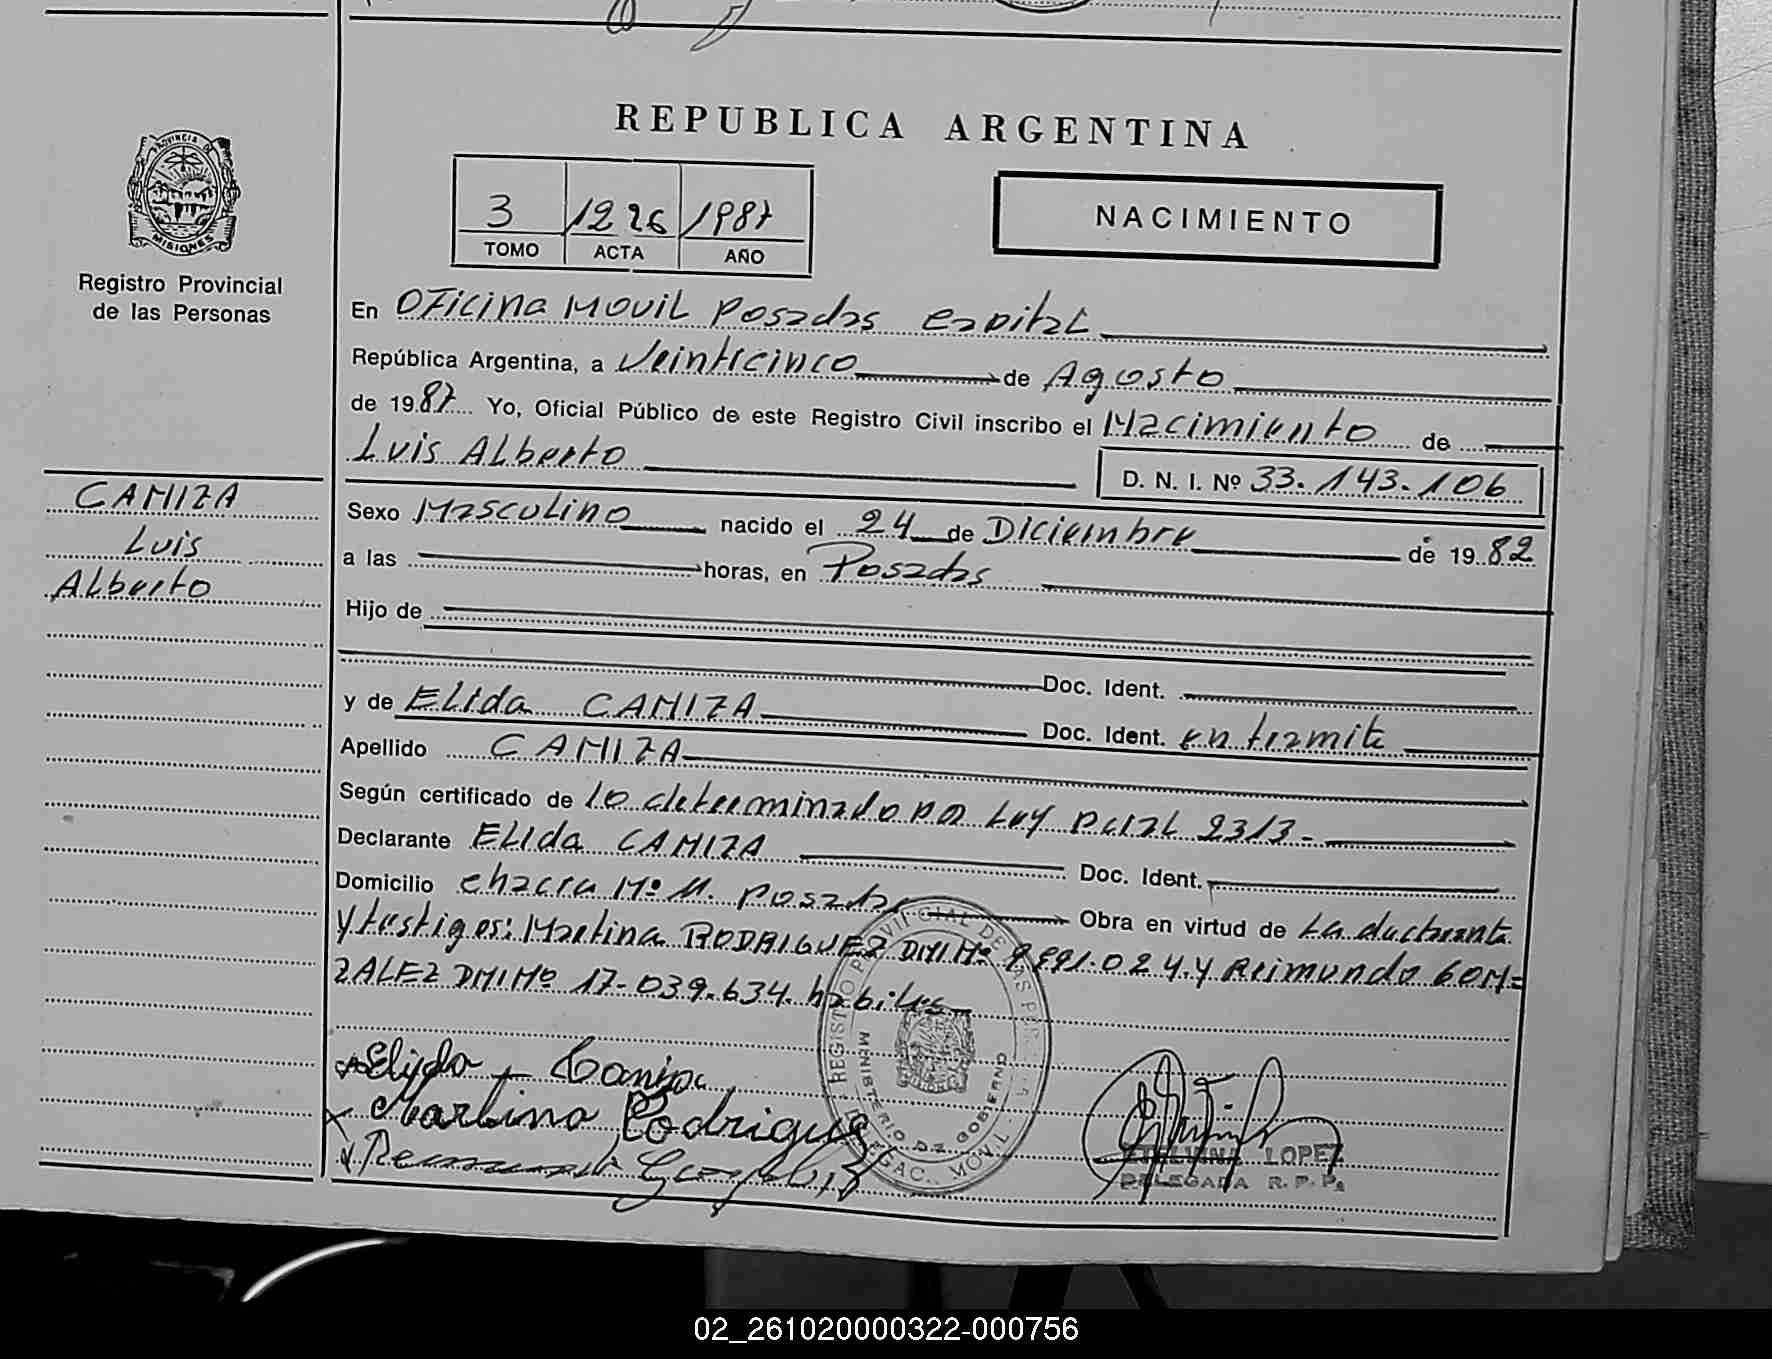 REPUBLICA ARGENTINA
PROVINCIA DE
MISIONES
Registro Provincial
de las Personas
3 1226 1987
TOMO ACTA AÑO
NACIMIENTO
En Oficina Movil Posadas Capital
República Argentina, a Veinticinco de Agosto
de 1987 Yo, Oficial Público de este Registro Civil inscribo el Nacimiento de
Luis Alberto
D. N. I. Nº 33.143.106
CANIZA
Luis
Alberto
Sexo Masculino nacido el 24 de Diciembre de 1982
a las horas, en Posadas
Hijo de
Doc. Ident.
y de Elida CANIZA Doc. Ident. en tramite
Apellido CANIZA
Según certificado de lo determinado por Ley Pcial 2313-
Declarante Elida CANIZA Doc. Ident.
Domicilio chacra Nº 11. Posadas Obra en virtud de La declarante
y testigos: Martina RODRIGUEZ DNI Nº 024. y Reimundo GON=
ZALEZ DNI Nº 17-039.634. habiles
Elida Caniza
Martina Rodrigues
REGISTRO PROVINCIAL DE LAS PERSONAS
MINISTERIO DE GOBIERNO
DELEGAC. MOVIL
ETELVINA LOPEZ
DELEGADA R. P. P.
02_261020000322-000756